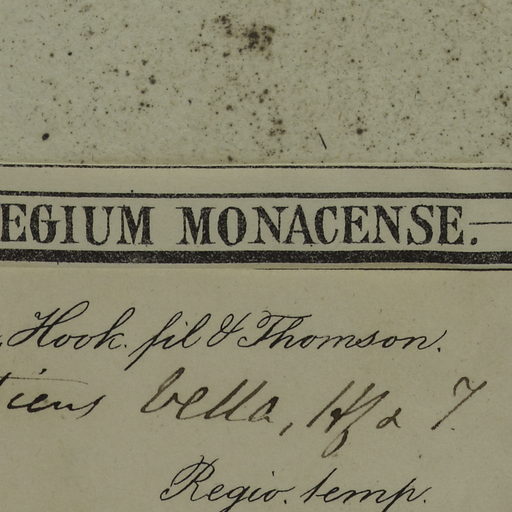 EGIUM MONACENSE.
Hook. fil & Thomson.
tiens bella, Hf & T.
Regio. temp.